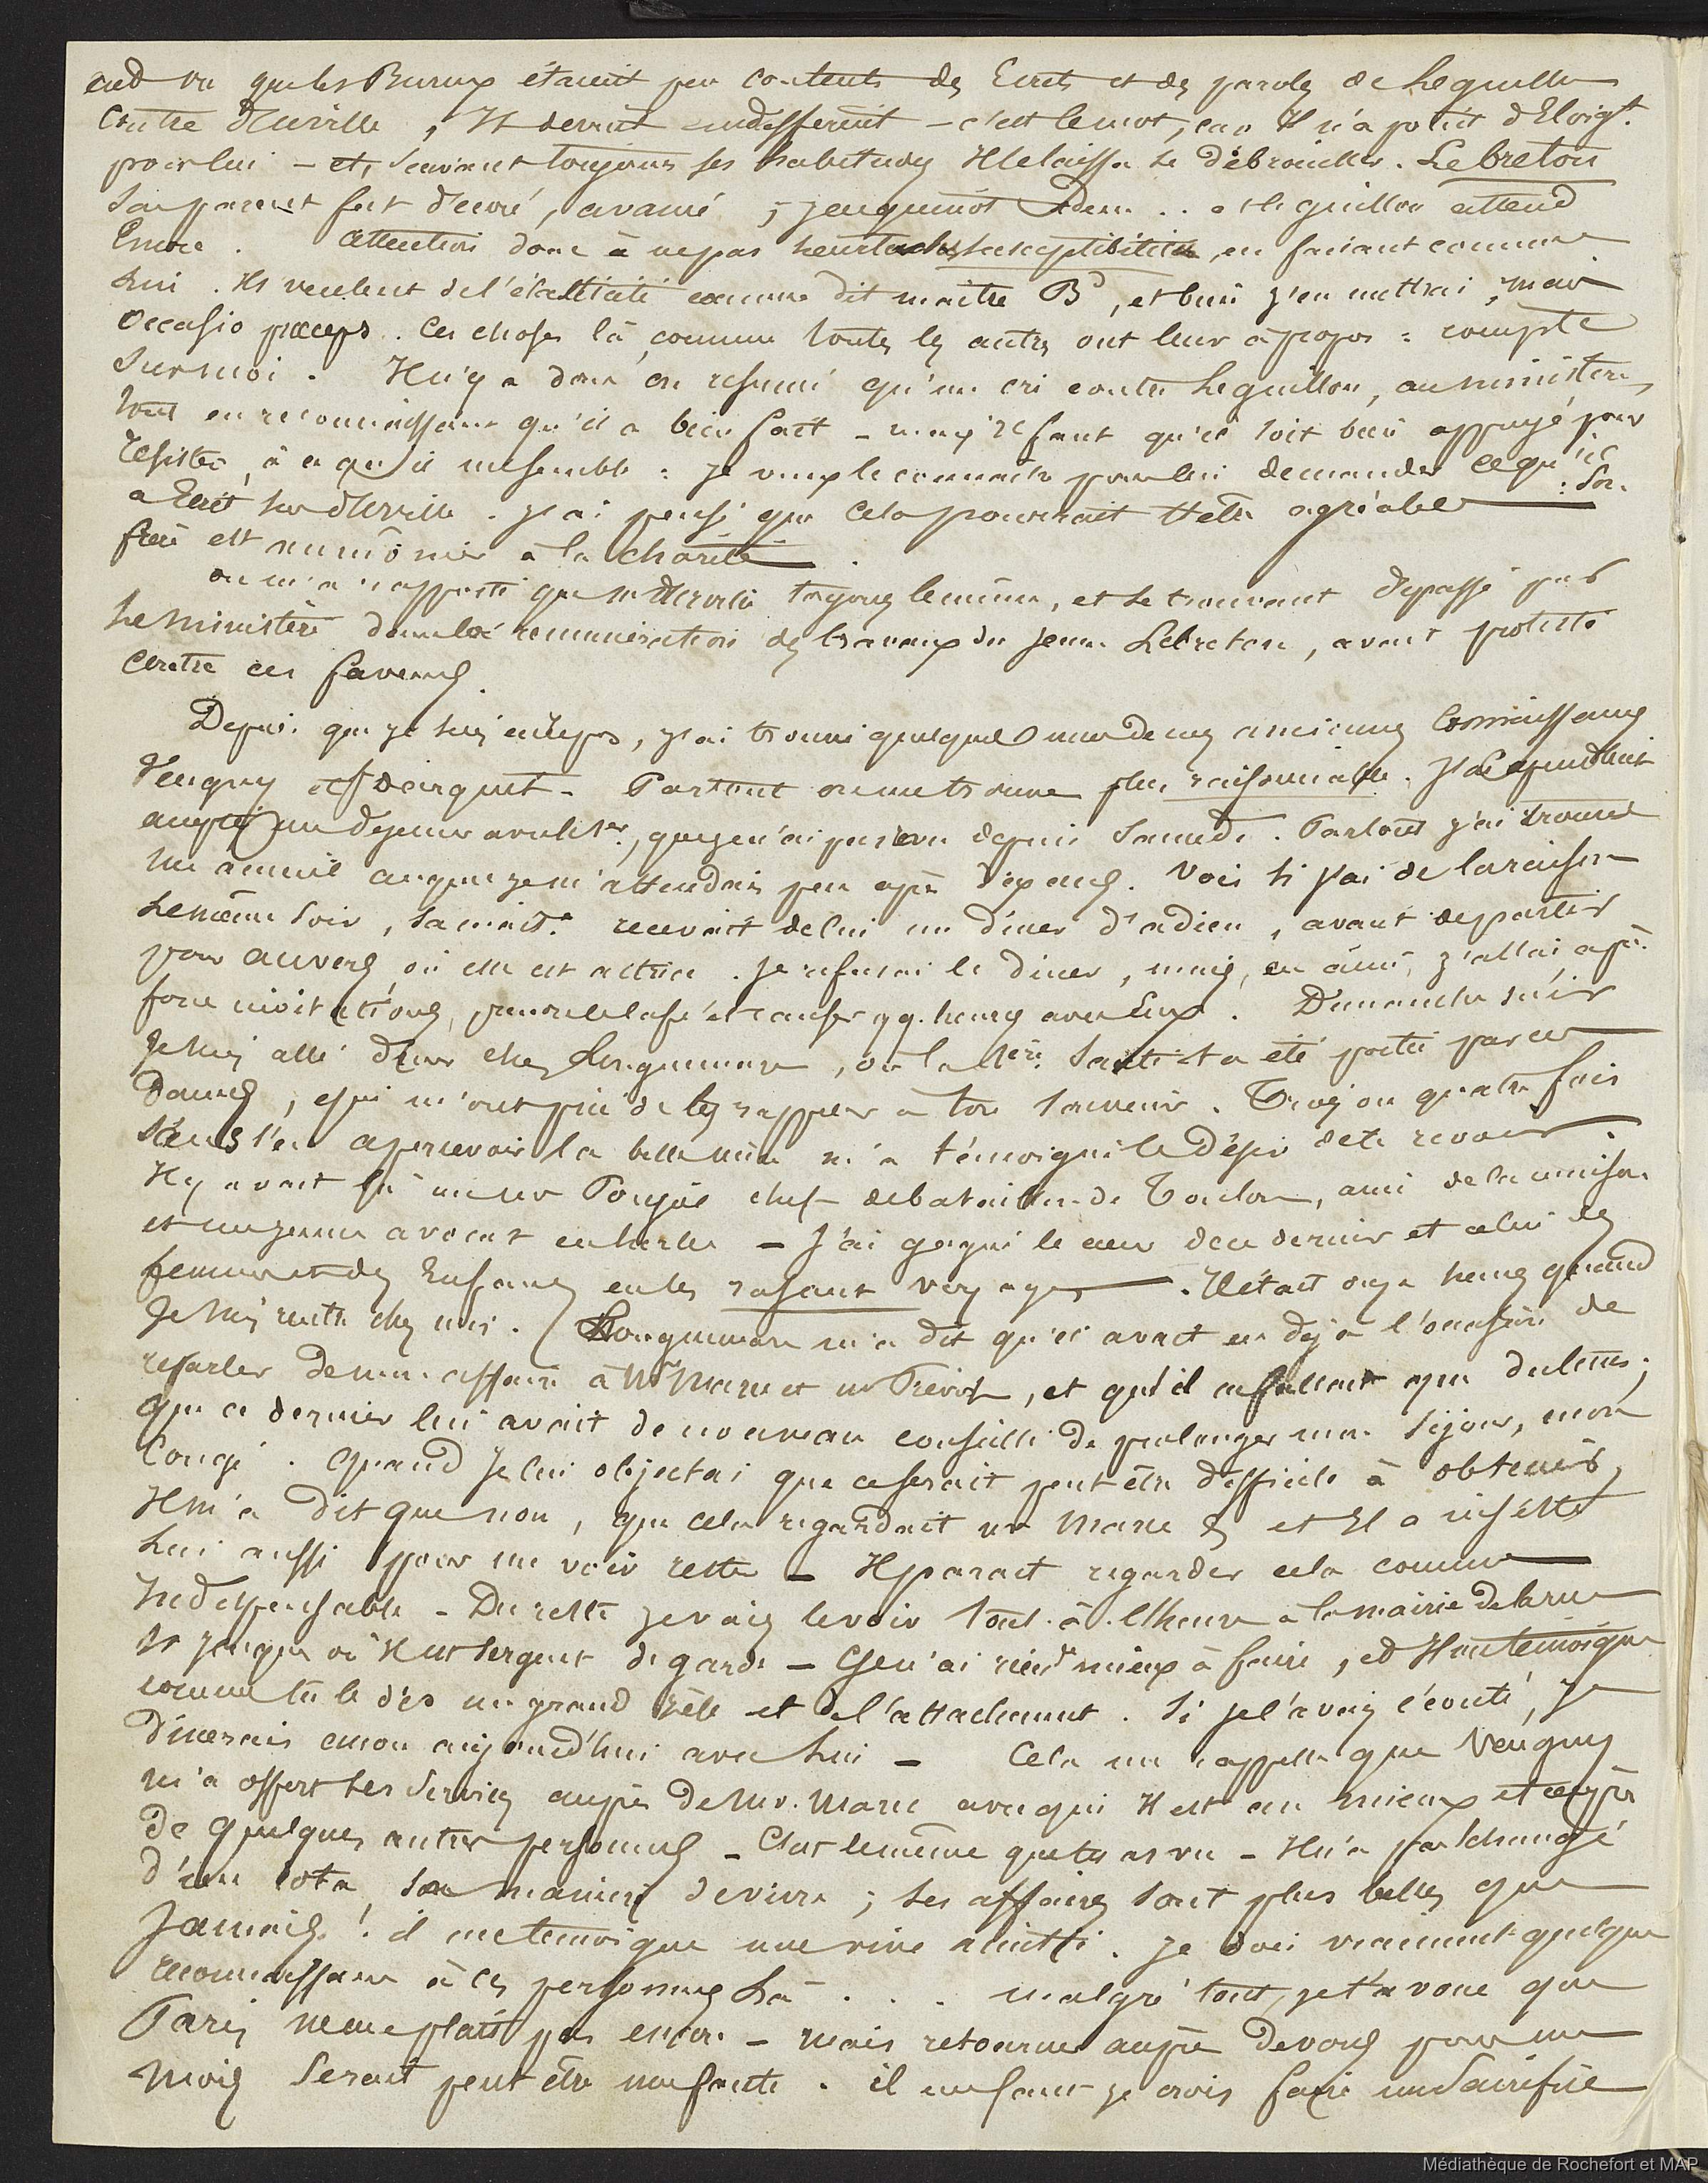 eud vu que les Bureaux étaient peu contents des Ecrits et des paroles de Leguillou
Contre d'Urville, Il devint indifférent - c'est le mot, car Il n'a point d'Eloigt.
pour lui - et, suivant toujours ses habitudes Il le laissa se débrouiller. Lebreton
Son parent fut décoré, avancé ; jacquinot Idem . . et leguillou attend
Encore. Attention donc à ne pas heurter les susceptibilités, en faisant comme
lui. Ils veulent de l'élasticité comme dit maître Bd, et bien j'en mettrai, mais
Occasio præceps. Ces choses là, comme toutes les autres ont leur à propos : compte
Sur moi. Il n'y a donc en résumé qu'un cri contre Leguillou, au ministère,
tout en reconnaissant qu'il a bien fait - mais il faut qu'il soit bien appuyé pour
résister, à ce qu'il me semble : je veux le connaître pour lui demander ce qu'il
a Ecrit sur d'Urville. j'ai pensé que Cela pourrait t'etre agréable : Son
frère est aumônier à la charité.
on m'a rapporté que mr d'Urville toujours le même, et se trouvant dépassé par
Le Ministère dans la rémunération des travaux du jeune Lebreton, avait protesté
Contre ces faveurs.
Depuis que je suis ici, j'ai trouvé quelques unes de mes anciennes Connaissances
Veugny et . Partout on me trouve plus raisonnable. J'ai cependant
accepté un déjeuner avec le 1er, que je n'ai pas revu depuis Samedi. Partout j'ai trouvé
Un accueil auquel je m'attendais peu après 10 ans. Vois si j'ai de la raison
Le même soir, sa maitse recevait de lui un diner d'adieu, avant de partir
pour Anvers, où elle est actrice. Je refusai le diner, mais, en ami, j'allai, après
force invitations, prendre le café et causer qq. heures avec Eux. Dimanche soir
Je suis allé diner chez , où la 1ère Santé t'a été portée par ces
Dames, qui m'ont prié de les rappeler à ton souvenir. Trois ou quatre fois
Sans s'en apercevoir la belle mère m'a témoigné le Désir de te revoir.
Il y avait là un mr chef de bataillon de Toulon, ami de la maison
et un jeune avocat en herbe - J'ai gagné le cœur de ce dernier et celui des
femmes et des Enfans en les rasant voyages. Il était onze heures quand
Je suis rentré chez moi. m'a dit qu'il avait eu déjà l'occasion de
reparler de mon affaire à Mr Marec et mr Prévost, et qu'il en fallait que du tems ;
que ce dernier lui avait de nouveau conseillé de prolonger mon Séjour, mon
Congé. Quand Je lui objectai que ce serait peut être difficile à obtenir,
Il m'a dit que non, que cela regardait mr Marec & et Il a insisté
Lui aussi pour me voir rester - Il parait regarder cela comme
Indispensable - Du reste je vais le voir tout à l'heure à la mairie de la rue
St Jacques où Il est sergent de garde - Je n'ai rien de mieux à faire, et Il me témoigne
comme tu le dis un grand zèle et de l'attachement. Si je l'avais écouté, je
Dinerais encore aujourd'hui avec Lui - Cela me rappelle que Veugny
M'a offert ses services auprès de Mr. Marec avec qui Il est au mieux et auprès
De quelques autres personnes - C'est le même que tu as vu - Il n'a pas changé
d'un iota sa manière de vivre ; Ses affaires sont plus belles que
Jamais ! il me témoigne une vive amitié. Je dois vraiment quelque
reconnaissance à ces personnes Là . . . malgré tout, je t'avoue que
Paris ne me plait pas encore - mais retourner auprès De vous pour un
Mois Serait peut être une faute. il me faut je crois faire un Sacrifice
Médiathèque de Rochefort et MAP